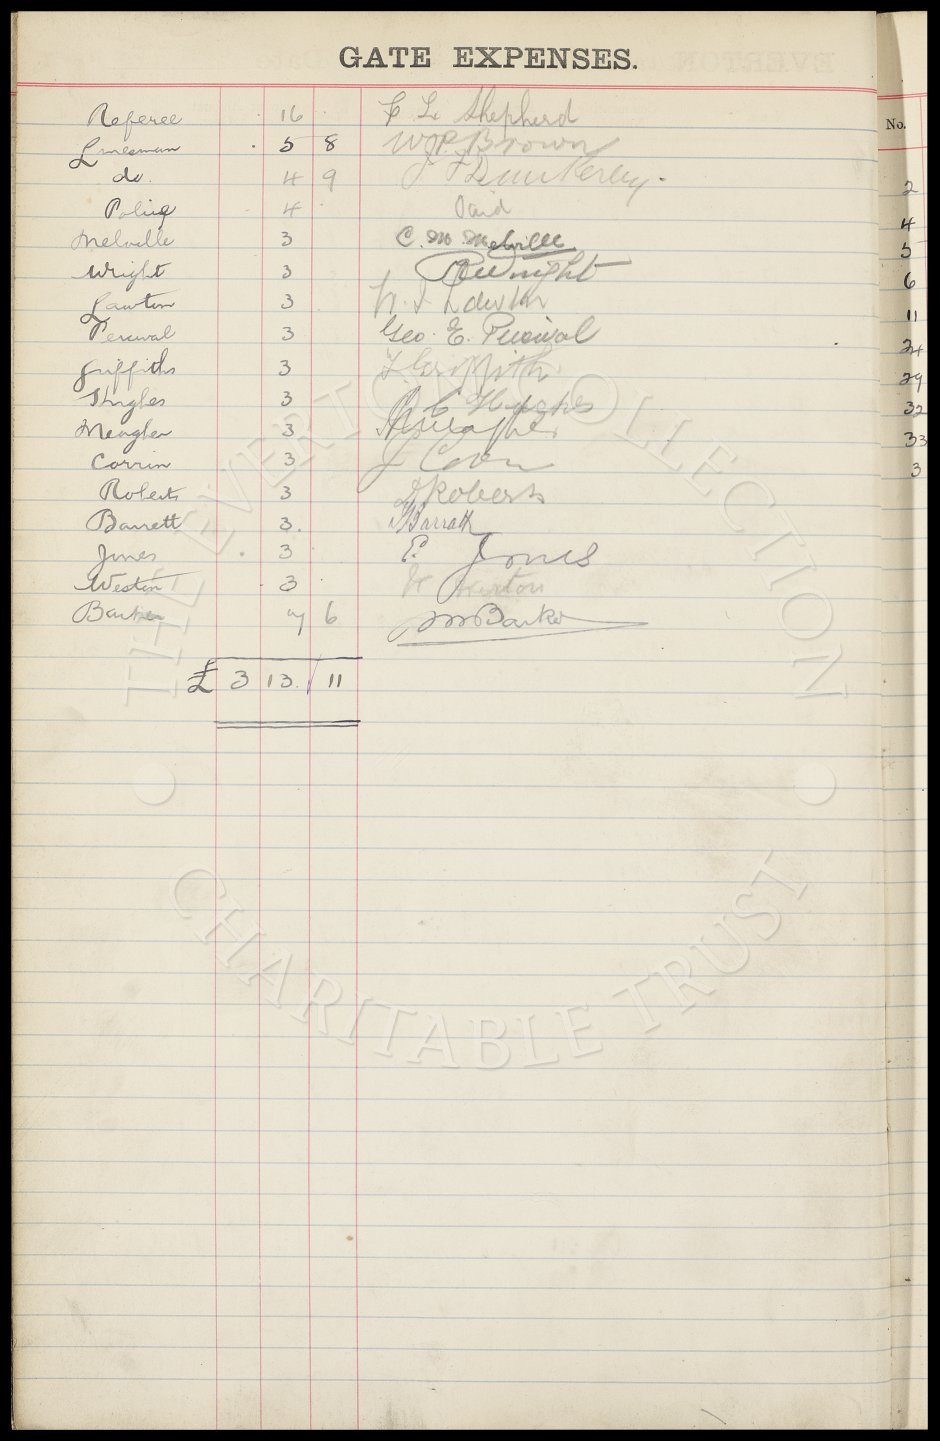 GATE EXPENSES.
Referee 16 F L Shepherd
Linesman 5 8 W P Brown
do. 4 9 J F Dunkerley.
Police 4 Paid
Melville 3 C. M. Melville
Wright 3 R W Wright
Lawton 3 Lawton
Percival 3 Geo. E. Percival
Griffiths 3 Griffith
Hughes 3 C Hughes
Meagher 3 Meagher
Corrin 3 J Corrin
Roberts 3 Roberts
Barrett 3. Barratt
Jones 3 E. Jones
Weston 3 Weston
Barker 7 6 Barker
£ 3 13. 11
No.
2
4
5
6
11
24
29
32
33
3
THE EVERTON COLLECTION
CHARITABLE TRUST